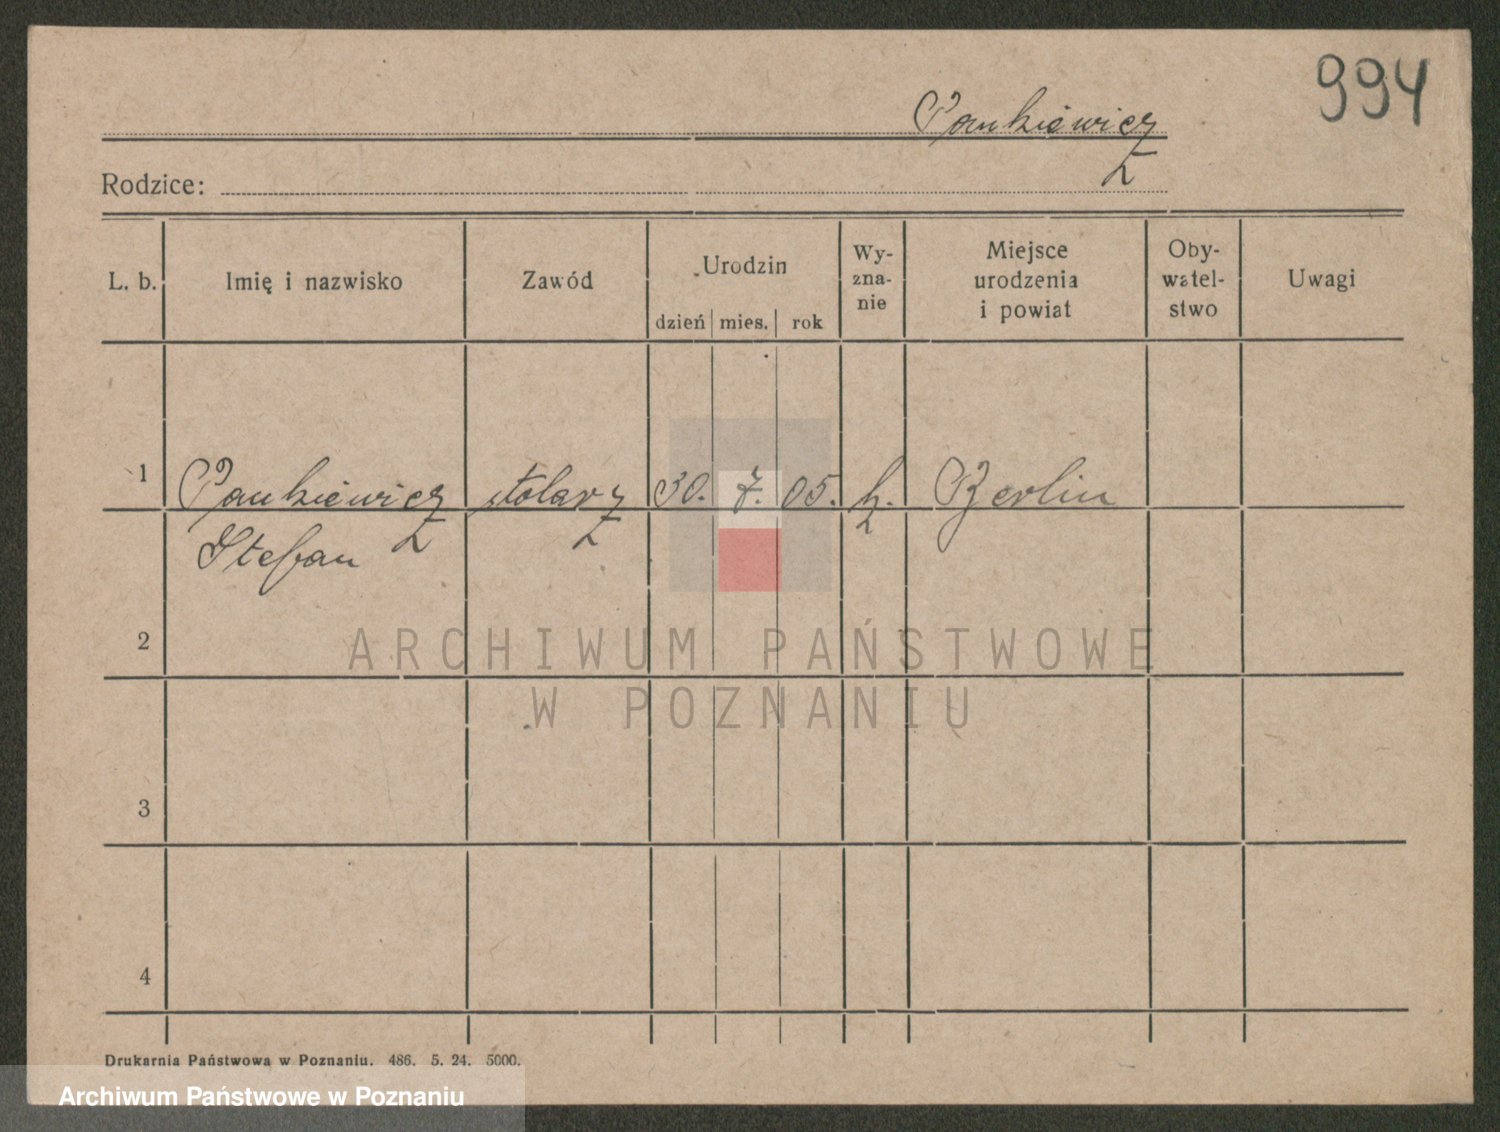 994
Pankiewicz
Rodzice:
L. b.
Imię i nazwisko
Zawód
Urodzin
dzień mies. rok
Wy-
zna-
nie
Miejsce
urodzenia
i powiat
Oby-
watel-
stwo
Uwagi
1 Pankiewicz stolarz 30. 7. 05. k. Berlin
Stefan
2
3
4
ARCHIWUM PAŃSTWOWE
W POZNANIU
Drukarnia Państwowa w Poznaniu. 486. 5. 24. 5000.
Archiwum Państwowe w Poznaniu